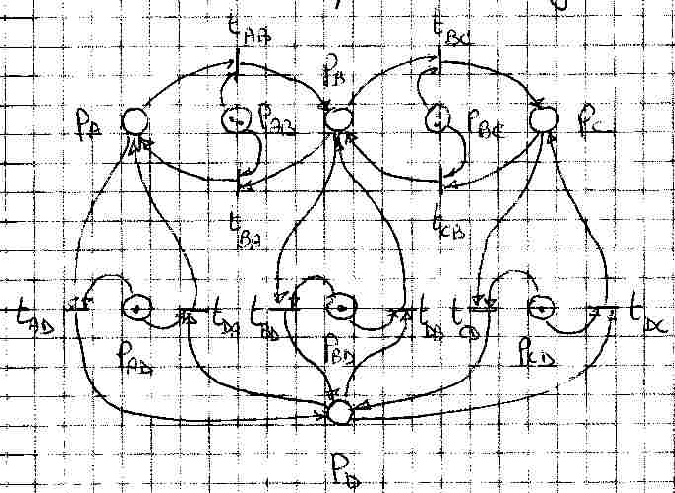 tAB tBC
PB
PA PAB PBC PC
tBA tCB
tAD tDA tBD tDB tCD tDC
PAD PBD PCD
PD